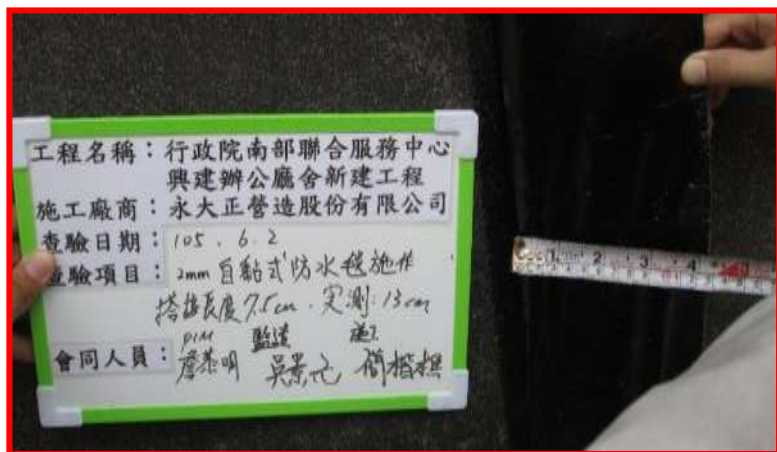 工程名稱：行政院南部聯合服務中心
興建辦公廳舍新建工程
施工廠商：永大正營造股份有限公司
查驗日期：105.6.2
查驗項目：2mm自黏式防水毯施作
搭接長度7.5cm．実測:13cm
PCM 監造 施工
會同人員：詹恭明 吳景元
1 2 3 4